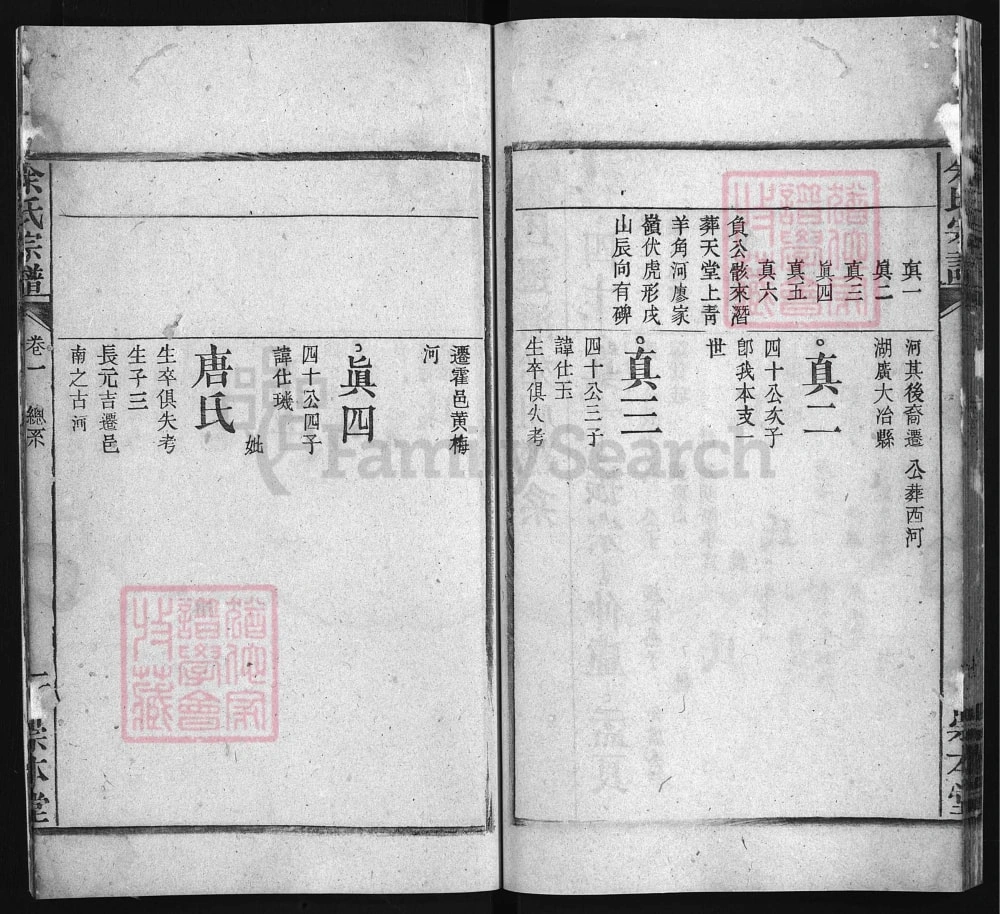 真一
真二
真三
真四
真五
真六
負公骸來潛
葬天堂上青
羊角河廖家
嶺伏虎形戌
山辰向有碑
河其後裔遷 公葬西河
湖廣大冶縣
真二
四十公次子
卽我本支一
世
真三
四十公三子
諱仕玉
生卒俱失考
遷霍邑黃梅
河
眞四
四十公四子
諱仕璣
妣
唐氏
生卒俱失考
生子三
長元吉遷邑
南之古河
余氏宗譜
卷一 總系
崇本堂
FamilySearch